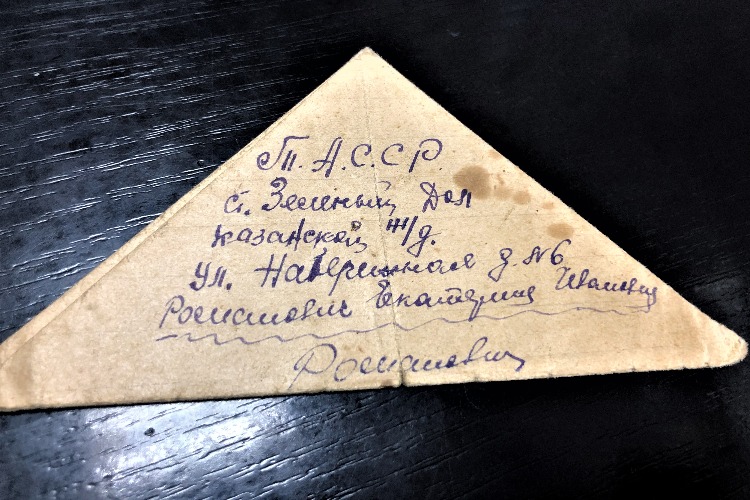 Т. А. С. С. Р.
ст. Зеленый Дол
казанской ж/д.
ул. Набережная д. №6
Романович Екатерине Ивановне
Романович